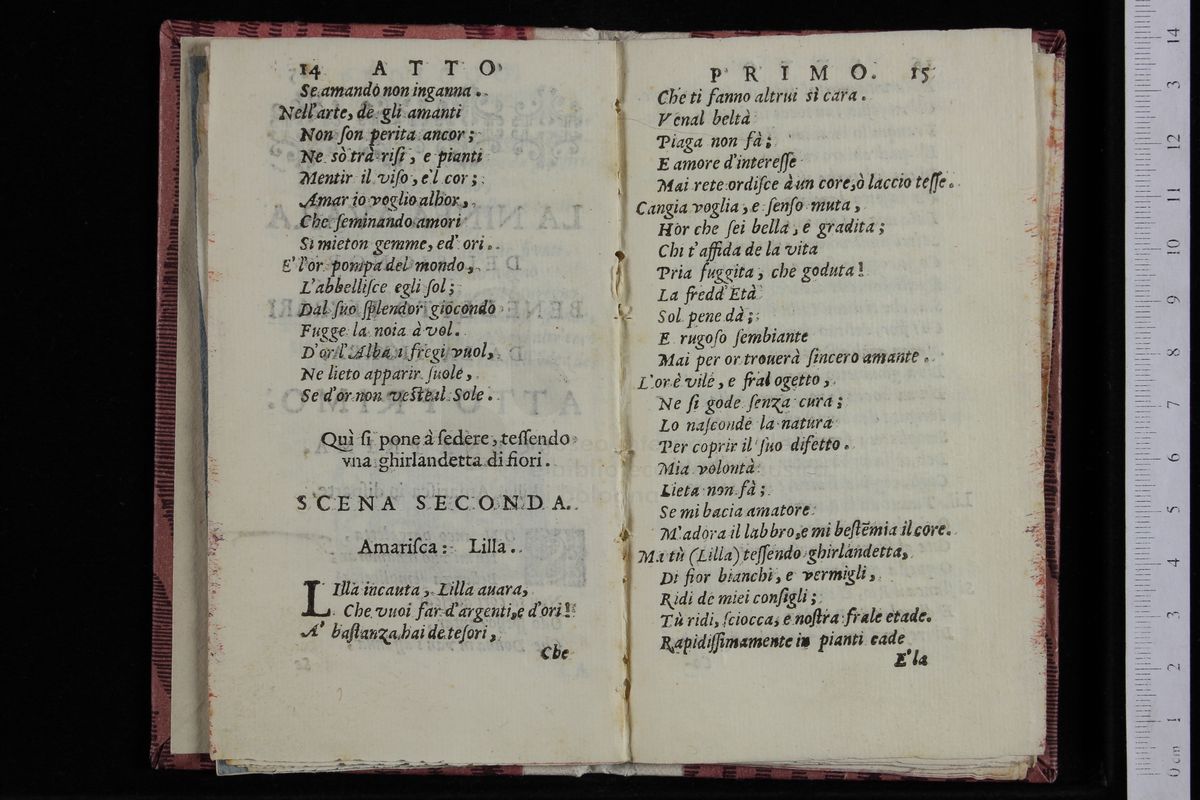 14 ATTO
Se amando non inganna.
Nell'arte, de gli amanti
Non ſon perita ancor;
Ne sò trà riſi, e pianti
Mentir il viſo, e'l cor;
Amar io voglio alhor,
Che ſeminando amori
Si mieton gemme, ed' ori.
E' l'or pompa del mondo,
L'abbelliſce egli ſol;
Dal ſuo ſplendor giocondo
Fugge la noia à vol.
D'or l'Alba i fregi vuol,
Ne lieto apparir ſuole,
Se d'or non veſte al Sole.
Quì ſi pone à ſedere, teſſendo
vna ghirlandetta di fiori.
SCENA SECONDA.
Amariſca: Lilla.
LIlla incauta, Lilla auara,
Che vuoi far d'argenti, e d'ori!
A' baſtanza hai de teſori,
Che
PRIMO. 15
Che ti fanno altrui sì cara.
Venal beltà
Piaga non fà;
E amore d'intereſſe
Mai rete ordiſce à un core, ò laccio teſſe.
Cangia voglia, e ſenſo muta,
Hor che ſei bella, e gradita;
Chi t'affida de la vita
Pria fuggita, che goduta!
La fredd' Età
Sol pene dà;
E rugoſo ſembiante
Mai per or trouerà ſincero amante.
L'or è vile, e fral ogetto,
Ne ſi gode ſenza cura;
Lo naſconde la natura
Per coprir il ſuo difetto.
Mia volontà
Lieta non fà;
Se mi bacia amatore
M'adora il labbro, e mi beſtēmia il core.
Ma tù (Lilla) teſſendo ghirlandetta,
Di fior bianchi, e vermigli,
Ridi de miei conſigli;
Tù ridi, ſciocca, e noſtra frale etade.
Rapidiſſimamente in pianti cade
E' la